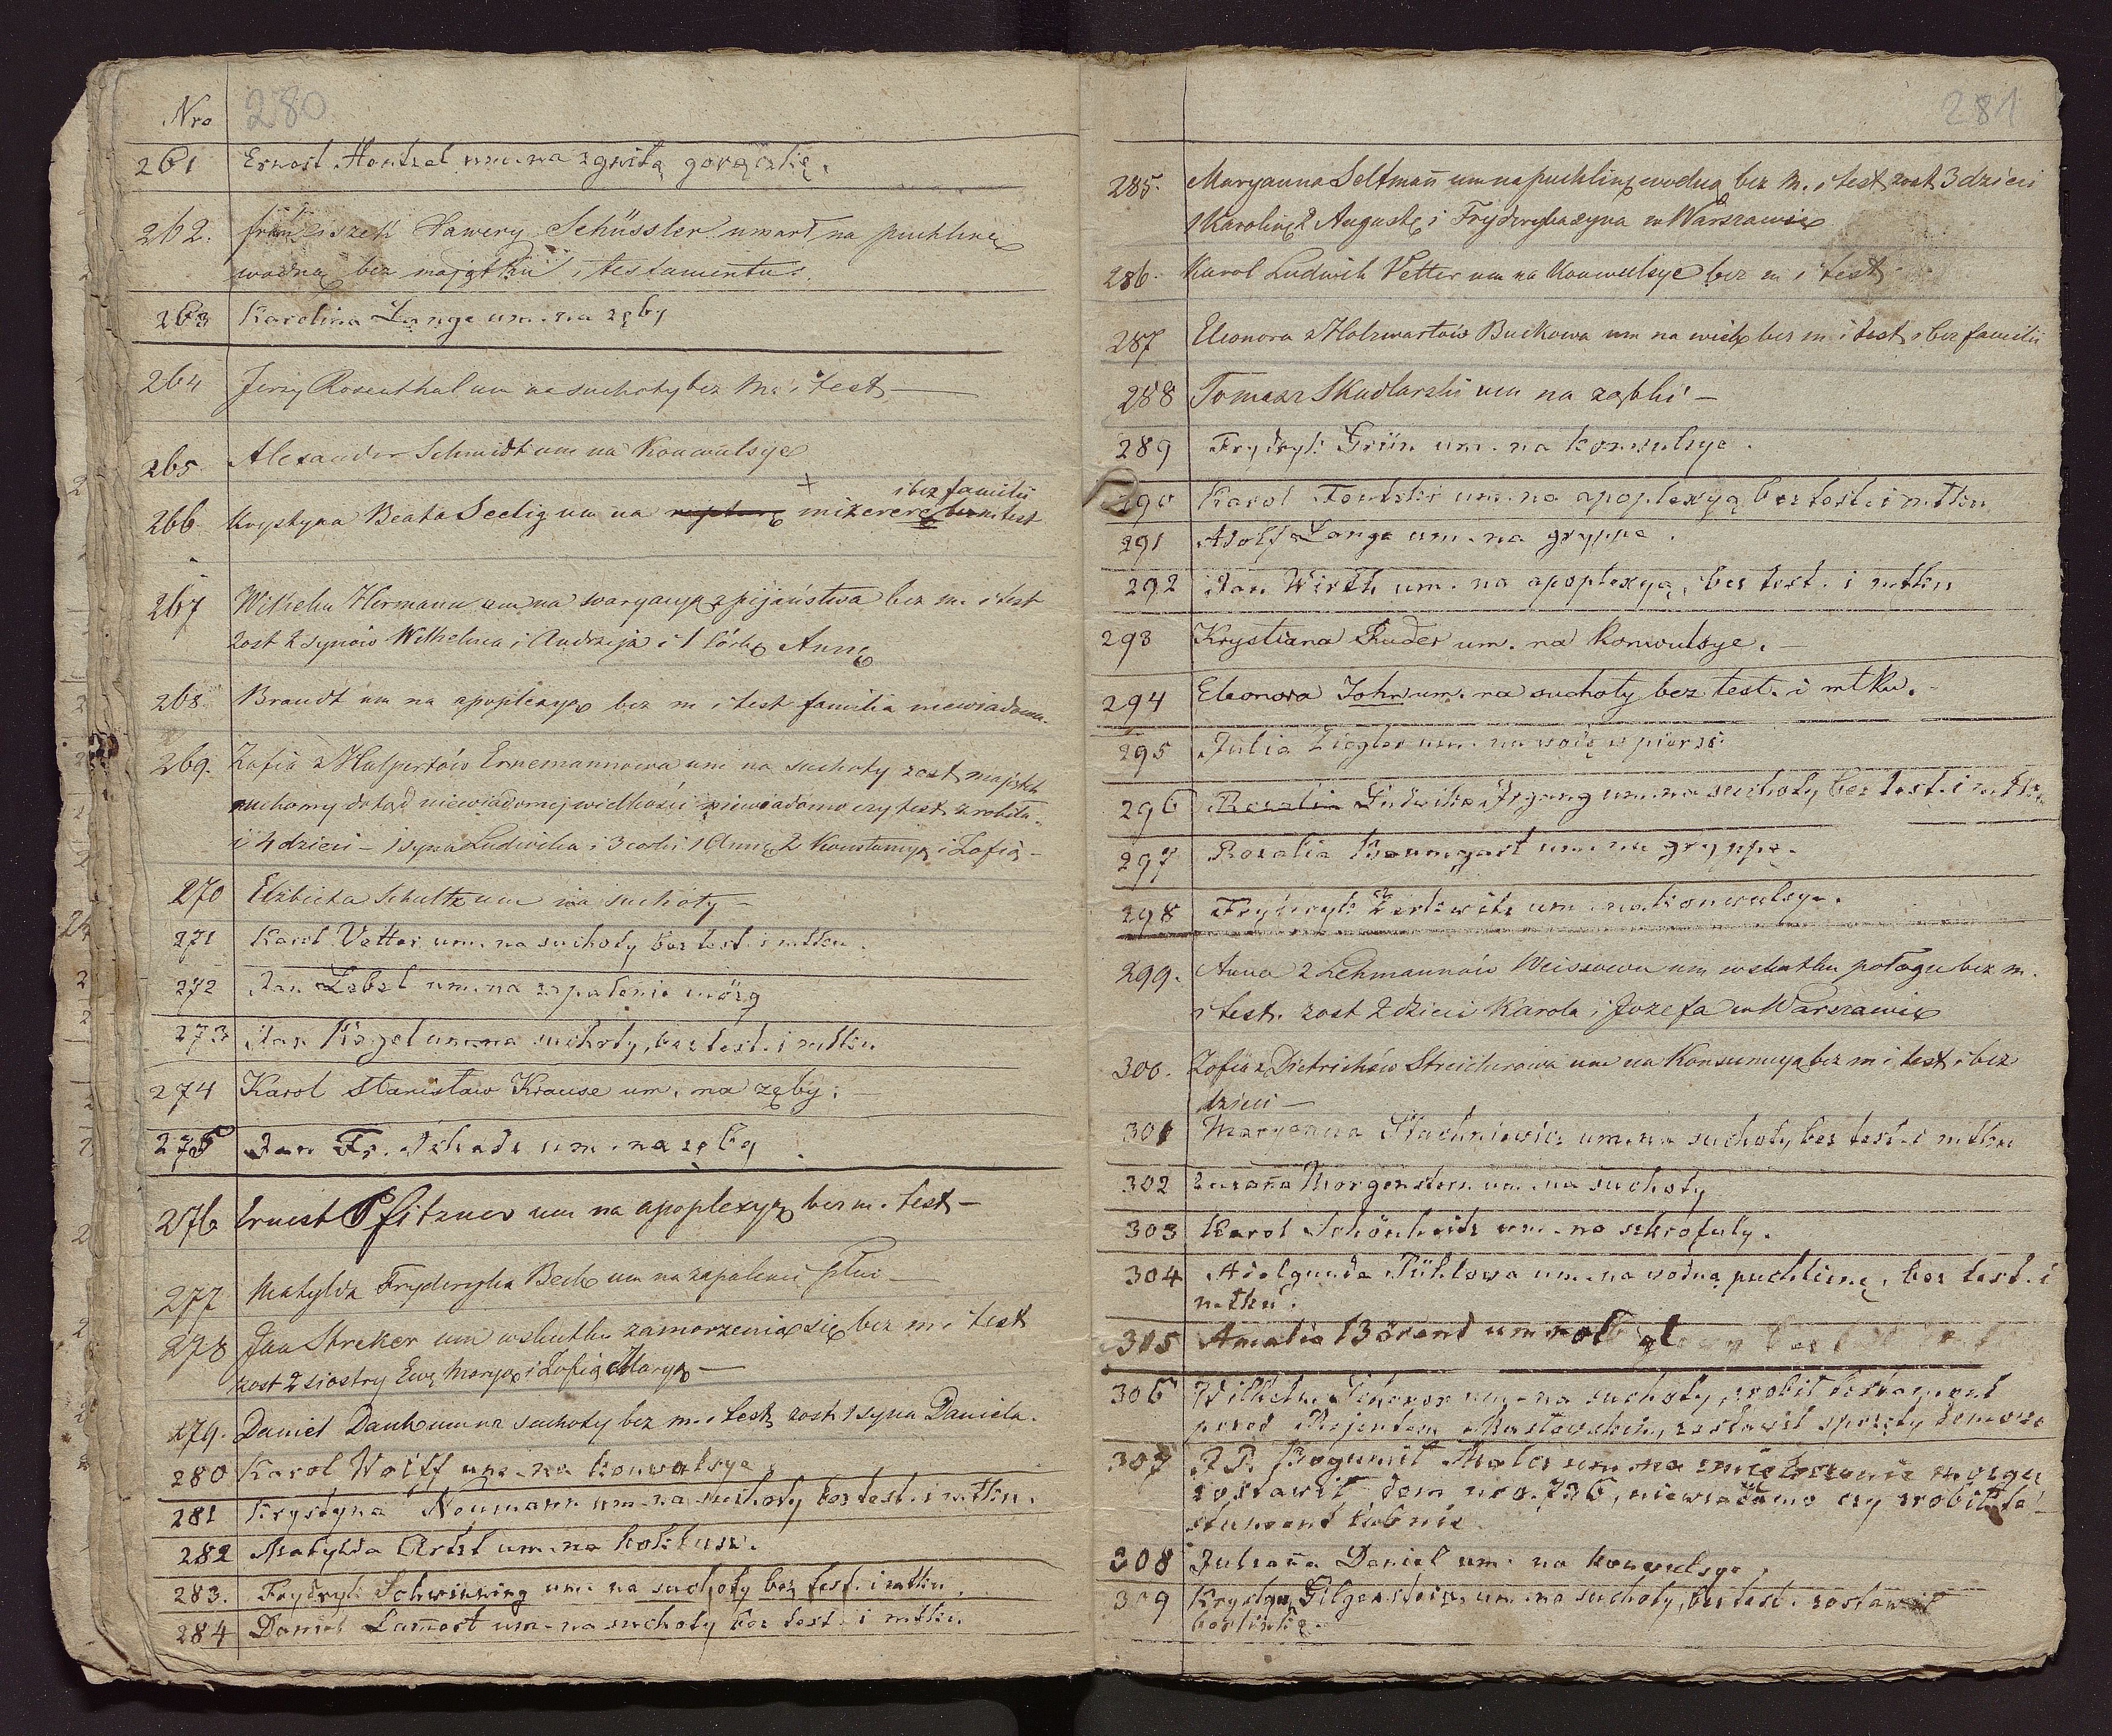 280
Nro
261 Ernest Hentzel um. na zgniłą gorączkę.
262. franciszek Xawery Schüssler umarł na puchlinę
wodną bez majątku i testamentu.
263 Karolina Lange um. na zęby
264 Jerzy Rosenthal um na suchoty bez m. i test —
265. Alexander Schmidt um na Konwulsye
i bez familii
266. Krystyna Beata Seelig um na miserere bez m i test
267 Wilhelm Hermann um na waryacyą z pijaństwa bez m. i test
zost 2 synów Wilhelma i Andrzeja i 1 córkę Annę
268. Brandt um na apoplexyą bez m i test familia niewiadoma.
269. Zofia z Halpertów Ernemannowa um na suchoty zost majątek
ruchomy dotąd niewiadomej wielkości niewiadomo czy test. zrobiła.
i 4 dzieci – 1 syna Ludwika i 3 corki 1 Annę 2 Konstancyą i Zofią –
270 Elżbieta Schultz um na suchoty –
271 Karol Vetter um. na suchoty bez test. i mtku.
272 Jan Lebel um. na zapalenie mózg
273 Jan Kogel um. na suchoty, bez test. i mtku
274 Karol Stanisław Krause um. na zęby. —
275 Jan Fr. Schade um. na zęby.
276 Ernest Pfitzner um na apoplexyą bez m. test –
277 Matylda Fryderyka Beck um na zapalenie płuc —
278 Jan Streker um wskutku zamorzenia się bez m. i test
zost 2 siostry Ewę Maryą i Zofią Maryą —
279. Daniel Dank um na suchoty bez m. i test zost 1 syna Daniela.
280 Karol Wolff um. na konwulsye.
281 Krystyna Neumann um. na suchoty bez test. i mtku.
282 Matylda Artzt um. na koklusz.
283. Frydryk Schwiening um. na suchoty bez test. i mtku.
284 Daniel Lamert um. na suchoty bez test. i mtku.
281
285. Maryanna Seltmañ um na puchlinę wodną bez m. i test zost 3 dzieci
1 Karolinę 2 Augustę i Fryderyka syna w Warszawie
286. Karol Ludwik Vetter um na Konwulsye bez m i test
287 Eleonora z Holzwartów Buckowa um na wiek bez m i test i bez familii
288 Tomasz Skudlarski um na ząbki –
289 Frydryk Grün um. na konwulsye.
290 Karol um. na apoplexyą bez test. i mtku
291 Adolf Lange um. na gryppe.
292 Jan Wirth um. na apoplexyą, bez test. i mtku
293 Krystiana Ruder um. na Konwulsye. –
294 Eleonora John um. na suchoty bez test. i mtku. –
295 Julia Ziegler um. na wodę w piersi
296 Rozalia Ludwika Irgang um. na suchoty, bez test. i mtku
297 Rozalia Baumgart um. na gryppę.
298 Frydryk um. na konwulsye.
299. Anna z Lehmannów Weissowa um wskutku połogu bez m.
i test. zost 2 dzieci Karola i Jozefa w Warszawie
300. Zofia z Dietrichów um na Konsumcyą bez m i test i bez
dzieci —
301 Maryanna Stachniewicz um. na suchoty bez test. i mtku
302 Zuzaña Morgenstern um. na suchoty
303 Karol Schönheide um. na szkrofuły.
304 Adelgunda Tühlowa um. na wodną puchlinę, bez test. i
mtku.
305 Amalia Börend um
306 Wilhelm um. na suchoty, zrobił testament
przed Rejentem zostawił sprzęty domowe
307 J. P. Bogumił um. na mózgu
zostawił dom nro. 736, niewiadomo czy zrobił te-
stament lub nie.
308 Julianna Daniel um. na konwulsye.
309 Krystyn Hilgenstein um. na suchoty, bez test. zostawił